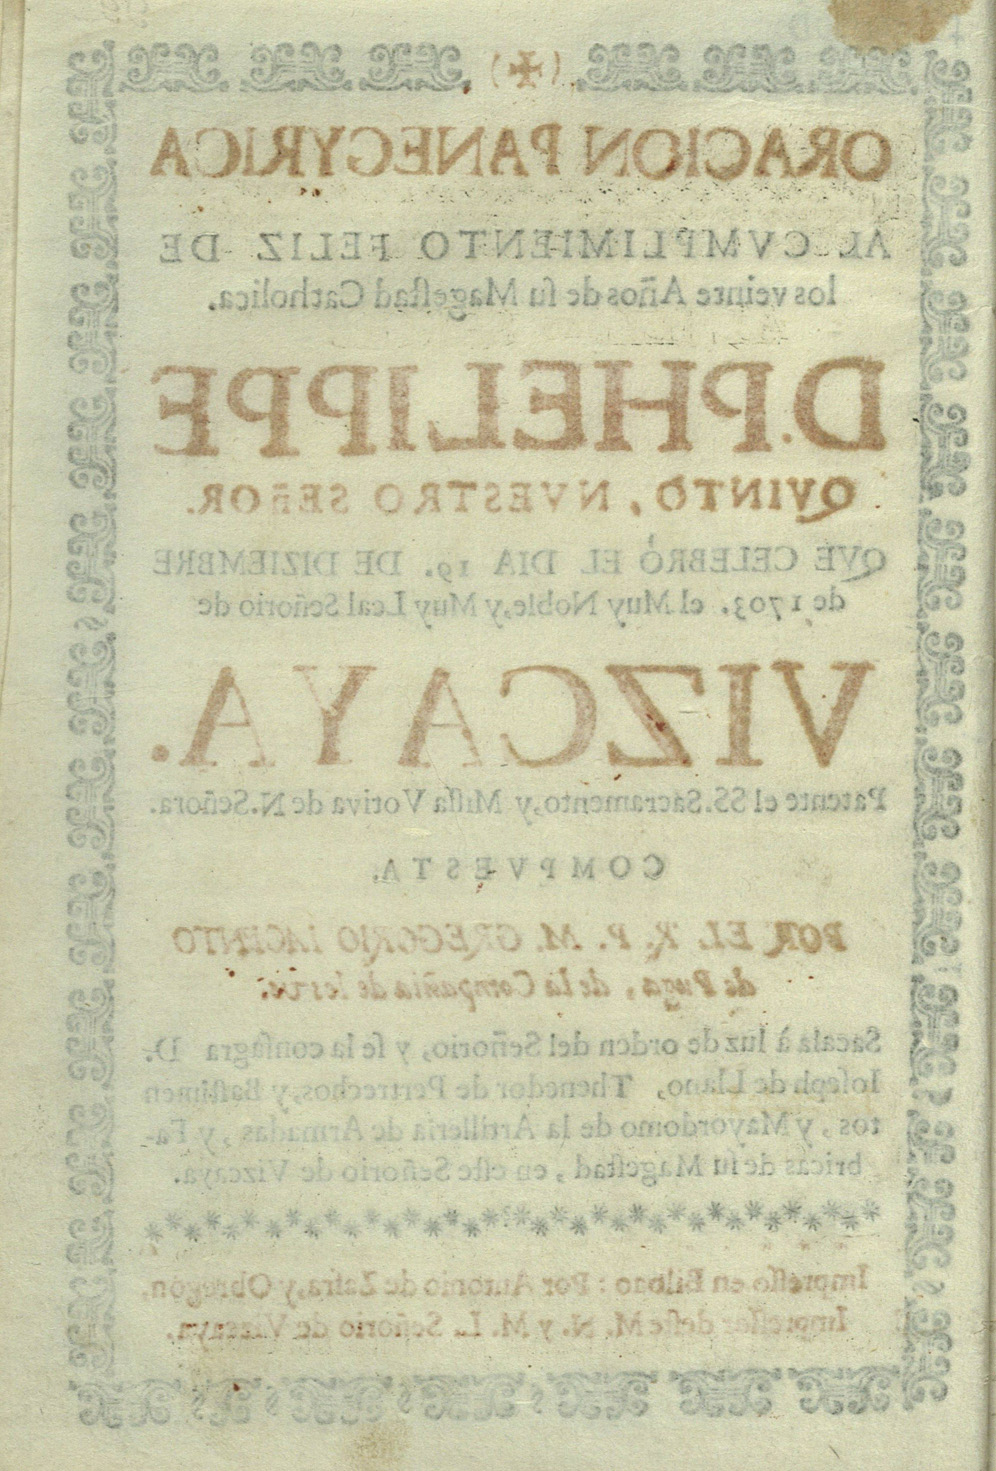 ORACION PANEGYRICA
AL CVMPLIMIENTO FELIZ DE
los veinte Años de ſu Mageſtad Catholica.
D.PHELIPPE
QVINTO, NVESTRO SEñOR.
QVE CELEBRÒ EL DIA 19. DE DIZIEMBRE
de 1703. el Muy Noble, y Muy Leal Señorio de
VIZCAYA.
Patente el SS. Sacramento, y Miſſa Votiva de N. Señora.
COMPVESTA.
POR EL R. P. M. GREGORIO IACINTO
de Puga, de la Compañia de Iesvs.
Sacala à luz de orden del Señorio, y ſe la conſagra D.
Ioſeph de Llano, Thenedor de Pertrechos, y Baſtimen
tos, y Mayordomo de la Artilleria de Armadas, y Fa-
bricas de ſu Mageſtad, en eſte Señorio de Vizcaya.
Impreſſo en Bilbao: Por Antonio de Zafra, y Obregon,
Impreſſor deſte M. N. y M. L. Señorio de Vizcaya.